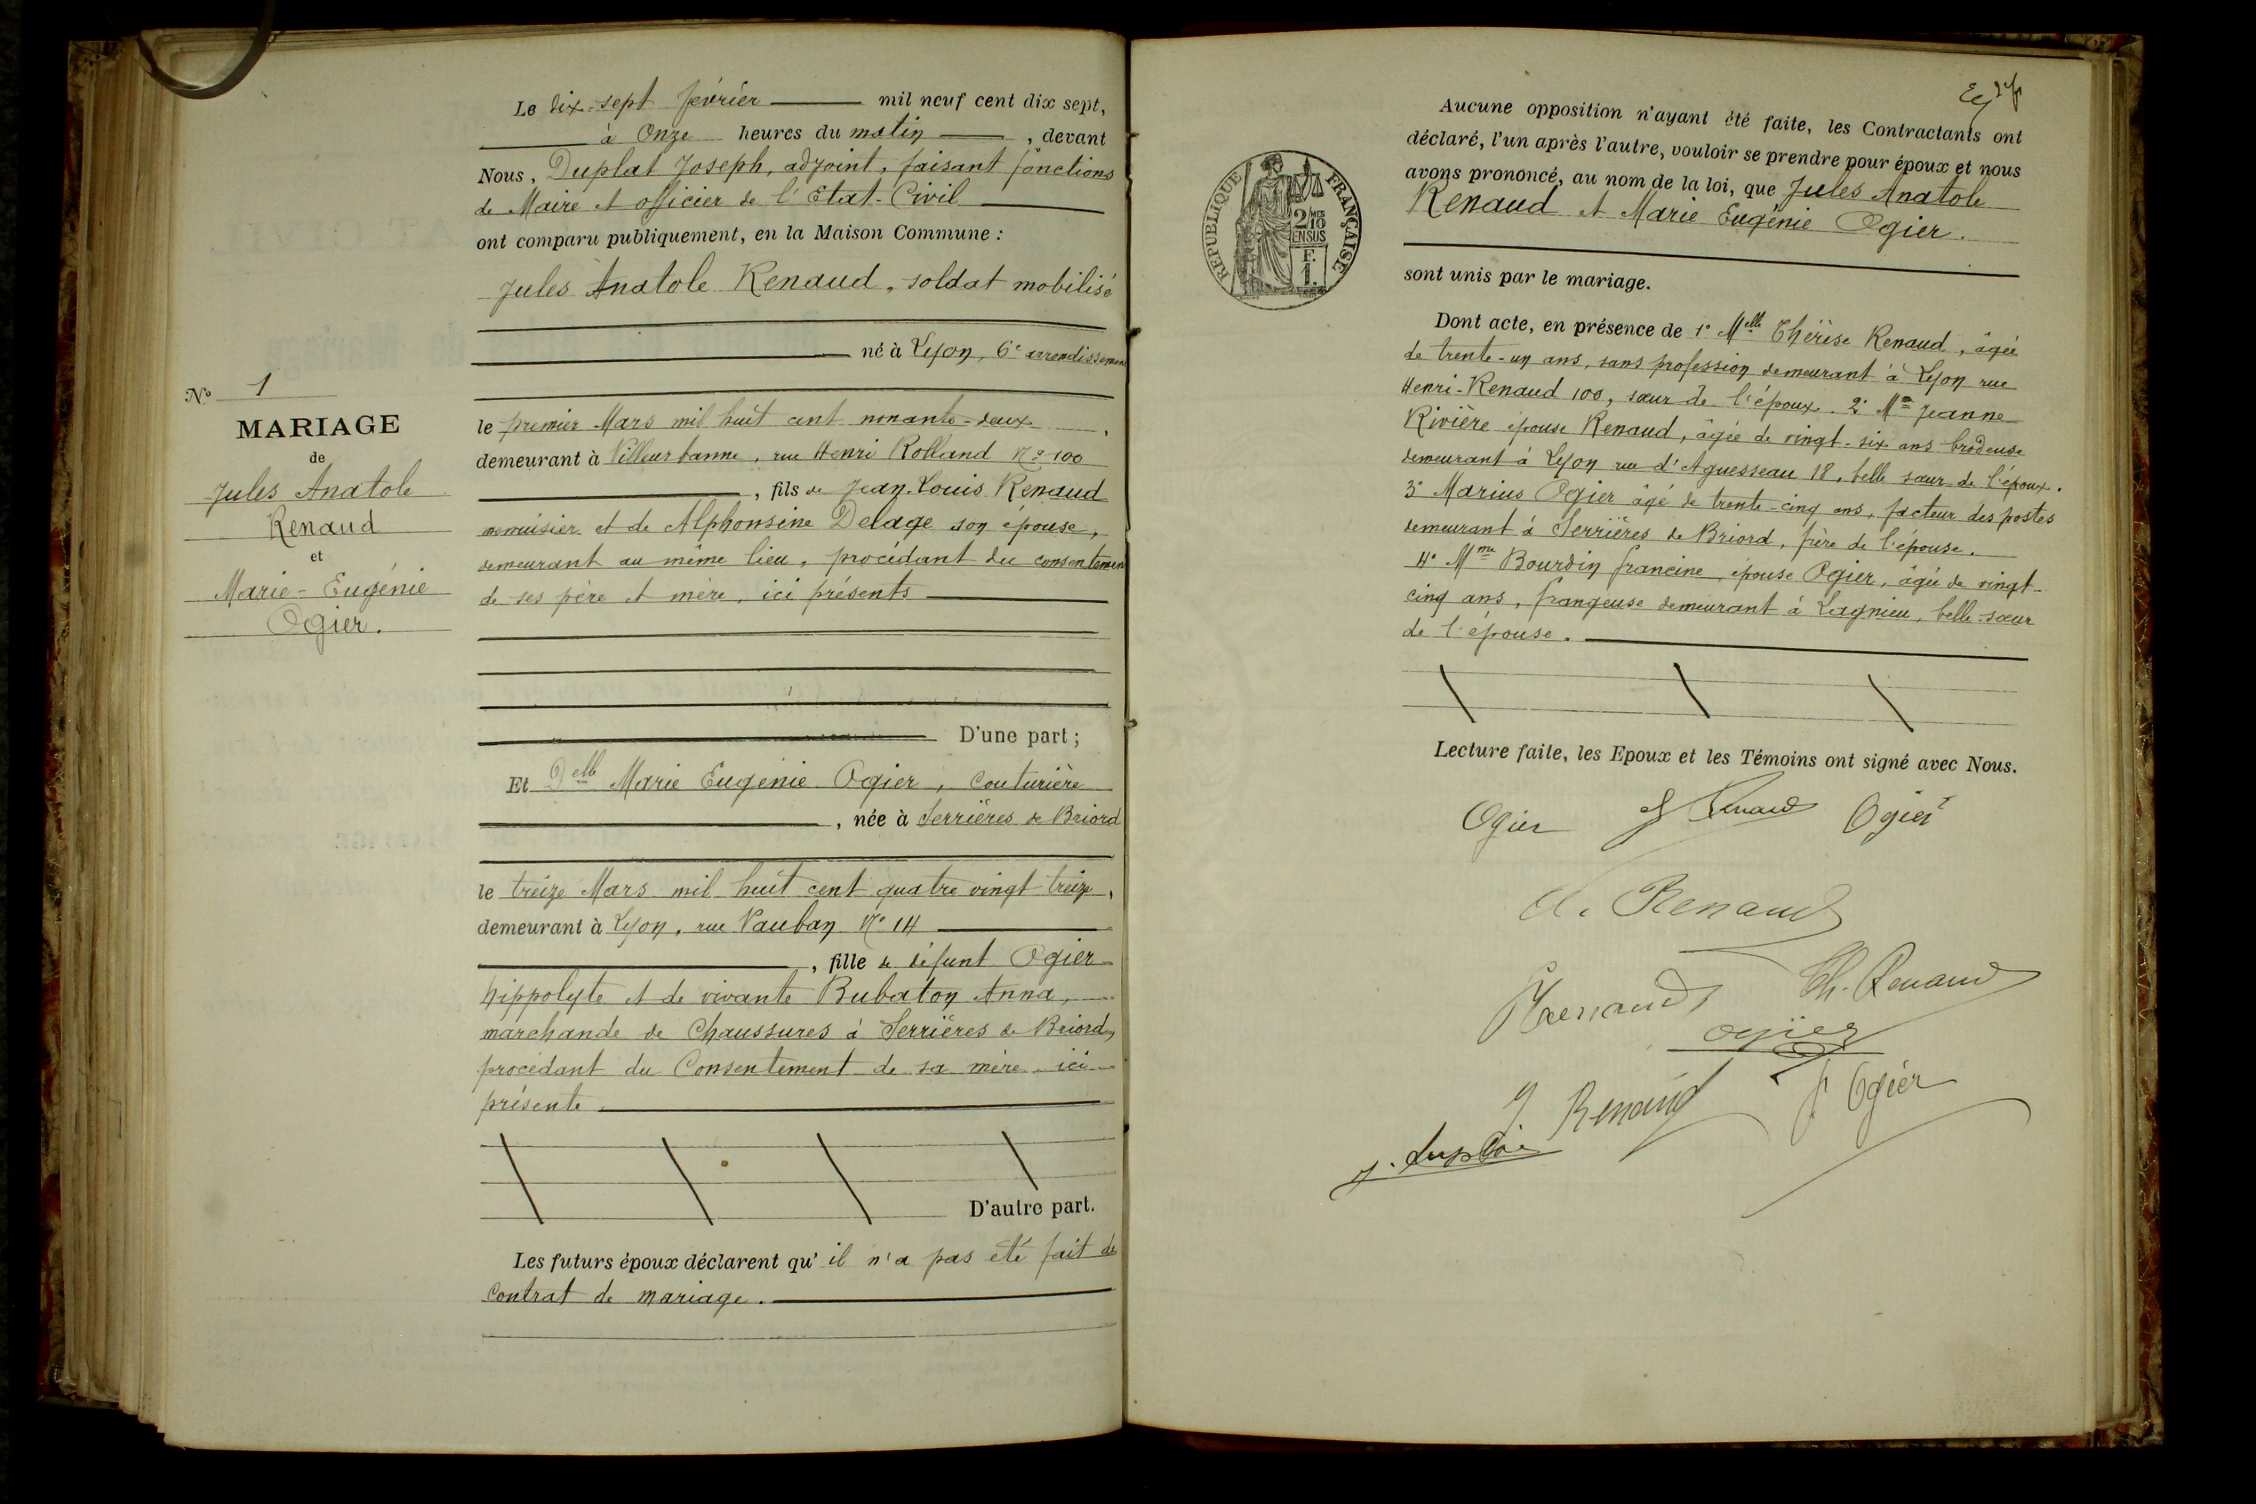 Le dix-sept février mil neuf cent dix sept,
à Onze heures du matin, devant
Nous, Duplat Joseph, adjoint, faisant fonctions
de Maire et officier de l'Etat-Civil
ont comparu publiquement, en la Maison Commune :
Jules Anatole Renaud, soldat mobilisé
né à Lyon, 6e arrondissement
le premier Mars mil huit cent nonante-deux,
demeurant à Villeurbanne, rue Henri Rolland No 100
, fils de Jean-Louis Renaud
menuisier et de Alphonsine Delage son épouse,
demeurant au même lieu, procédant du consentement
de ses père et mère, ici présents
D'une part ;
Et Delle Marie Eugénie Ogier, Couturière
, née à Serrières de Briord
le treize Mars mil huit cent quatre vingt treize,
demeurant à Lyon, rue Vauban No 14
, fille de défunt Ogier
hippolyte et de vivante Bubaton Anna,
marchande de Chaussures à Serrières de Briord,
procédant du Consentement de sa mère ici
présente
D'autre part.
Les futurs époux déclarent qu'il n'a pas été fait de
Contrat de mariage.
No 1
MARIAGE
de
Jules Anatole
Renaud
et
Marie-Eugénie
Ogier.
RÉPUBLIQUE FRANÇAISE
2/10
EN SUS
F.
1.
Aucune opposition n'ayant été faite, les Contractants ont
déclaré, l'un après l'autre, vouloir se prendre pour époux et nous
avons prononcé, au nom de la loi, que Jules Anatole
Renaud et Marie Eugénie Ogier.
sont unis par le mariage.
Dont acte, en présence de 1° Melle Thérèse Renaud, âgée
de trente-un ans, sans profession demeurant à Lyon rue
Henri-Renaud 100, sœur de l'époux. 2° Me Jeanne
Rivière épouse Renaud, âgée de vingt-six ans brodeuse
demeurant à Lyon rue d'Aguesseau 18, belle sœur de l'époux.
3° Marius Ogier âgé de trente-cinq ans, facteur des postes
demeurant à Serrières de Briord, frère de l'épouse.
4° Mme Bourdin francine épouse Ogier, âgée de vingt-
cinq ans, frangeuse demeurant à Lagnieu, belle-sœur
de l'épouse.
Lecture faite, les Epoux et les Témoins ont signé avec Nous.
Ogier J Renaud Ogier
A. Renaud
Renaud Th. Renaud
Ogier
J Renaud f Ogier
J. Duplat